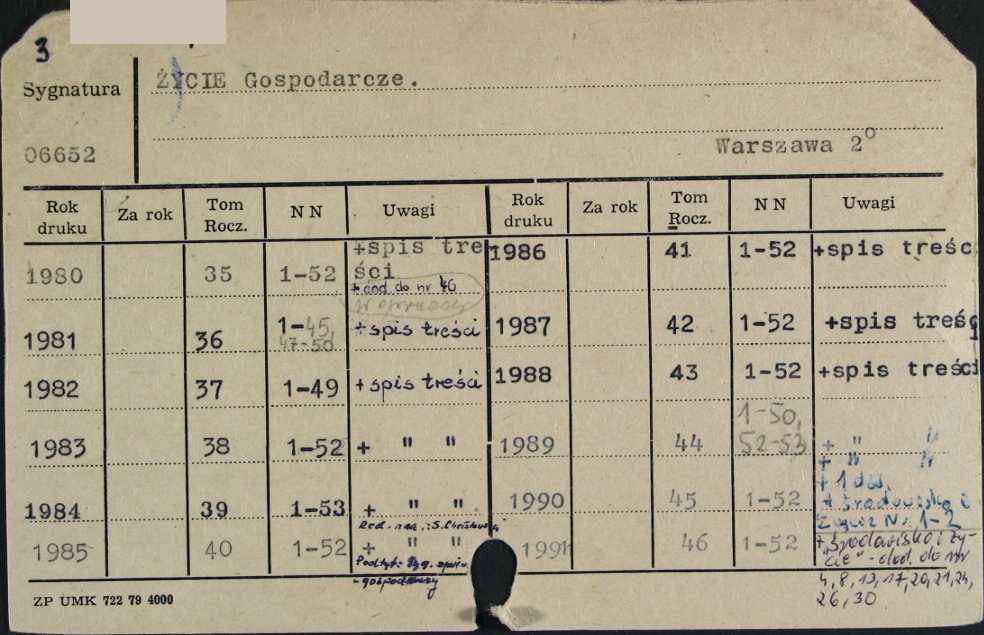 3
Sygnatura
ŻYCIE Gospodarcze.
06652
Warszawa 2°
Rok druku Za rok Tom Rocz. N N Uwagi Rok druku Za rok Tom Rocz. N N Uwagi
1980 35 1-52 +spis tre
ści
+ dod. do nr 46
1981 36 1-45, 47-50 +spis treści
1982 37 1-49 +spis treści
1983 38 1-52 + " "
1984 39 1-53 + " "
Red. nacz.: S.
1985 40 1-52 + " "
Podtyt.: Tyg.
-gospodarczy
1986 41 1-52 +spis treśc
1987 42 1-52 +spis treśc
1988 43 1-52 +spis treści
1989 44 1-50, 52-53 + " "
+ " "
+ 1 dod.
1990 45 1-52 + Środowisko i
Życie Nr 1-2
1991 46 1-52 + "Środowisko i ży-
cie" - dod. do nr
4, 8, 13, 17, 20, 21, 24,
26, 30
ZP UMK 722 79 4000